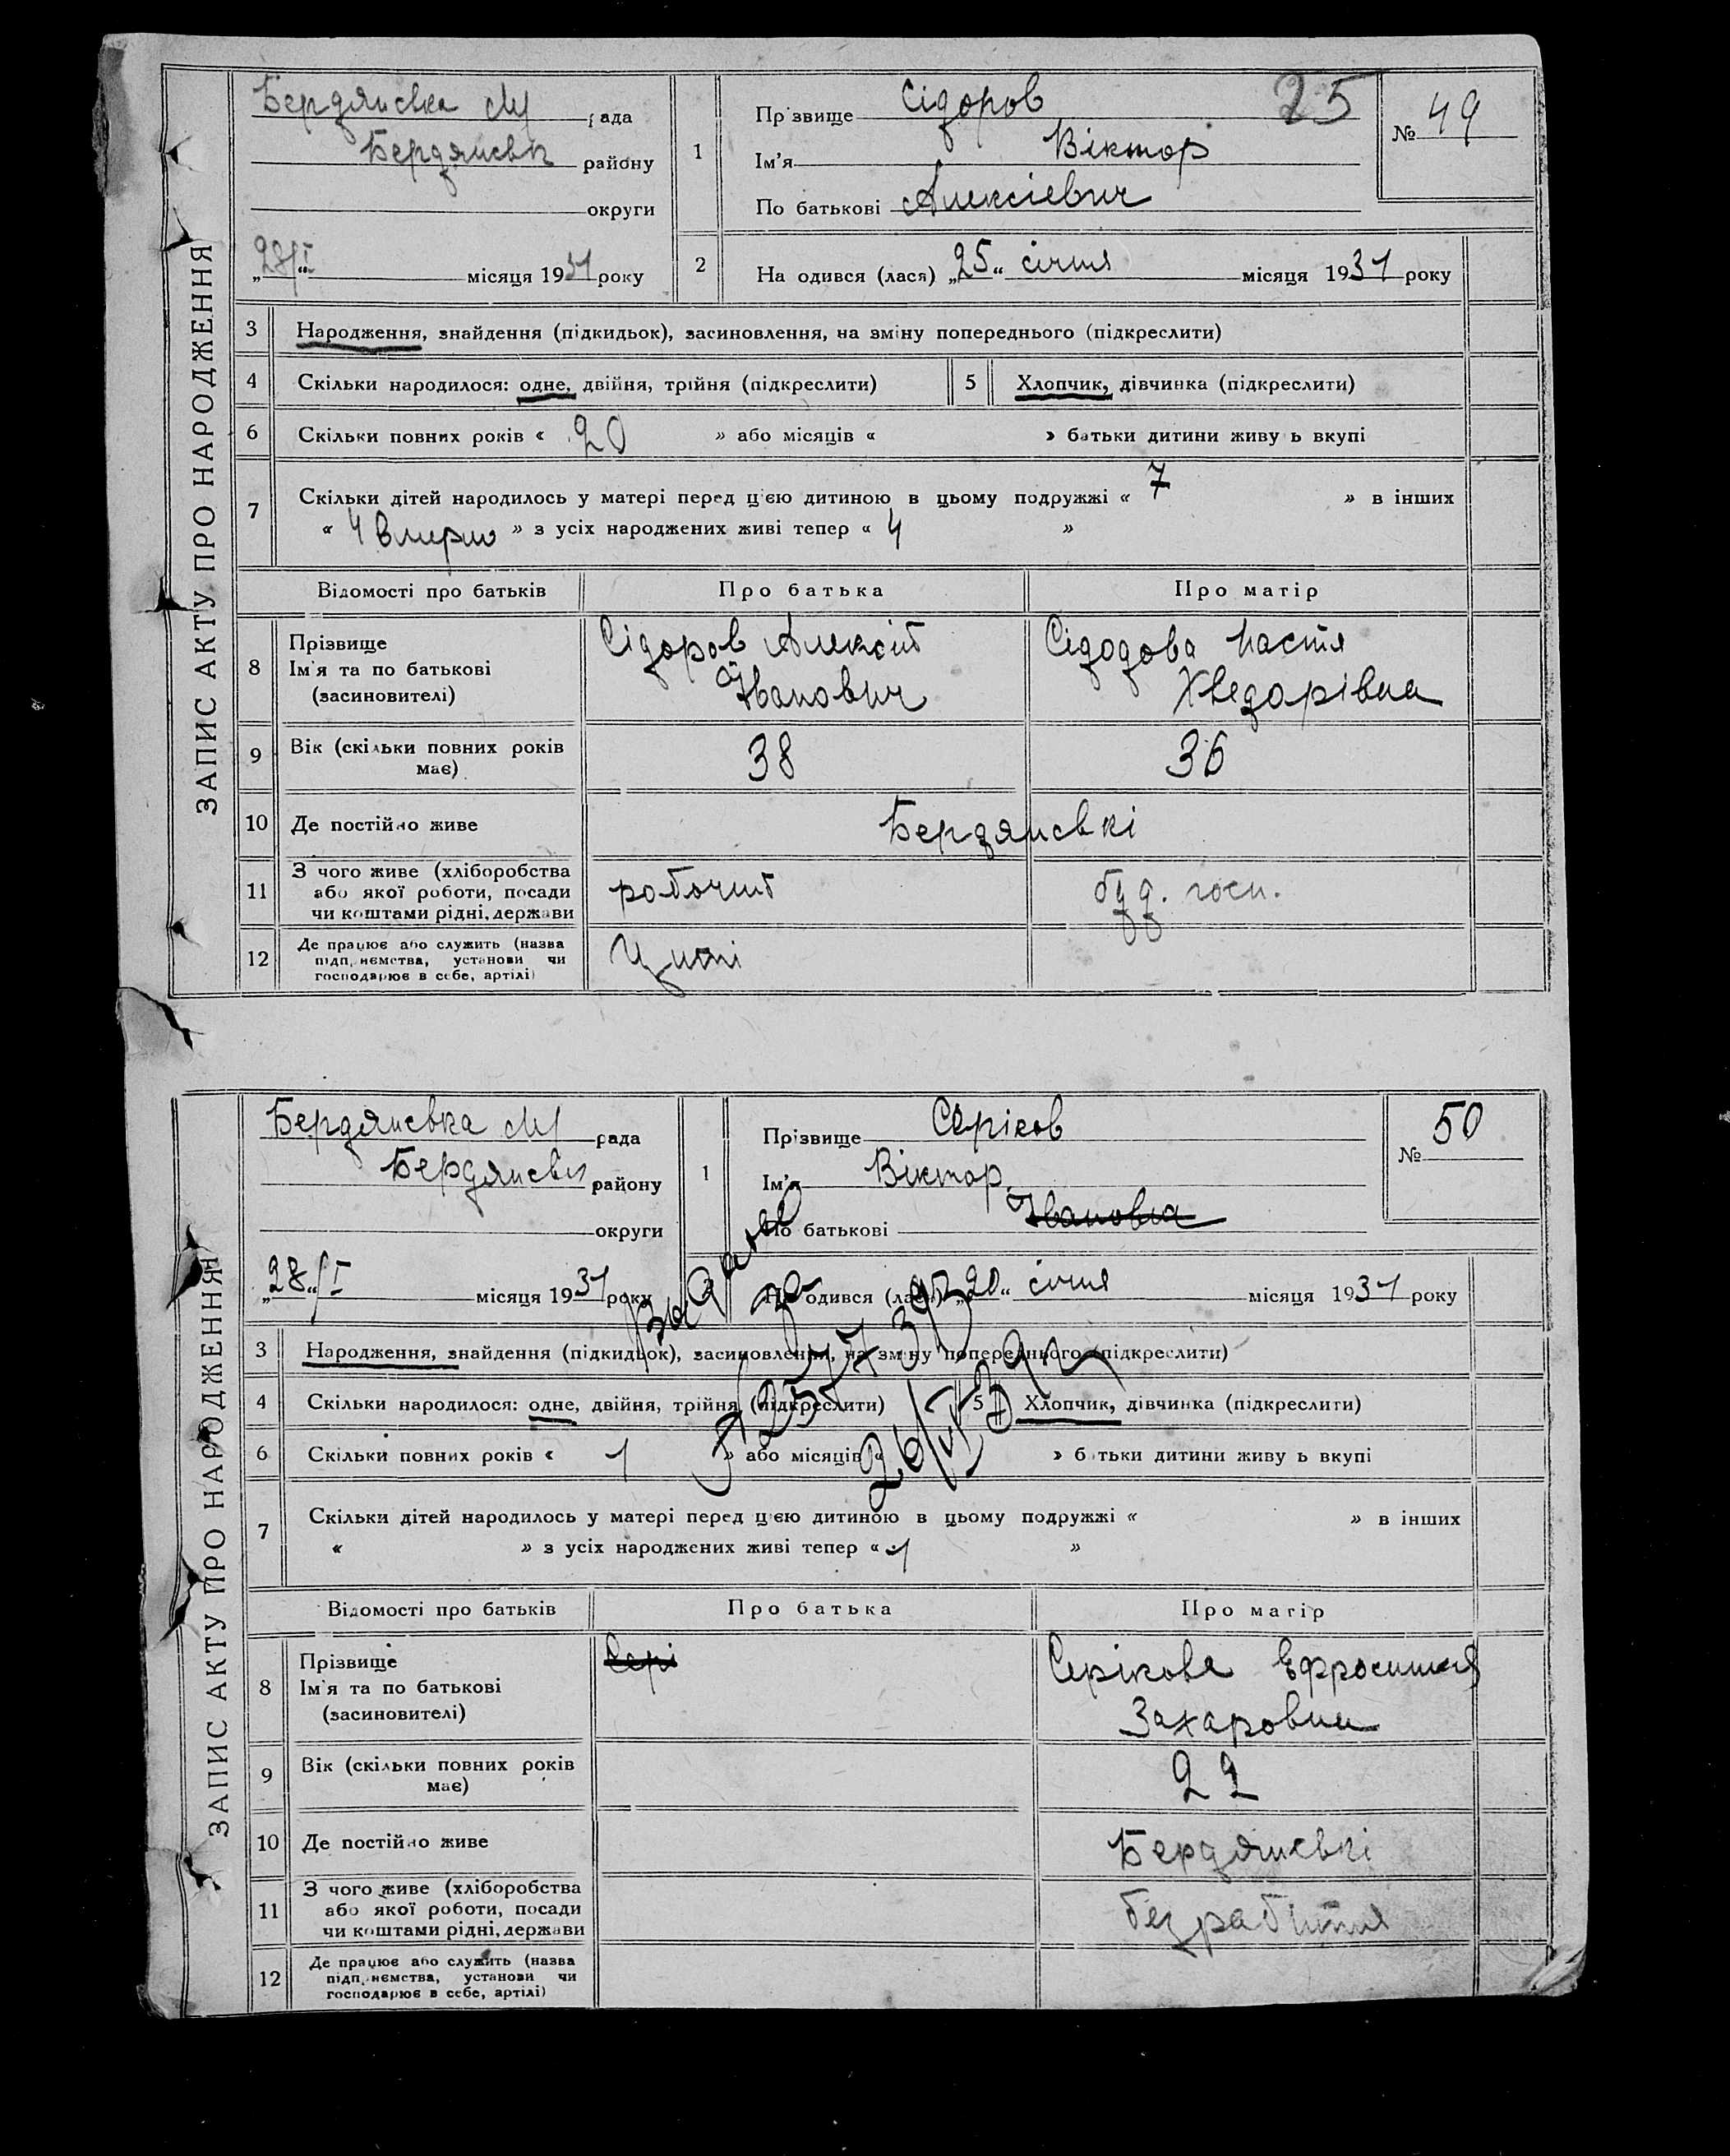 ЗАПИС АКТУ ПРО НАРОДЖЕННЯ
Бердянська М/ рада
Бердянськ району
округи
„28/I“ місяця 1931 року
1
Прізвище Сідоров
25
Ім'я Віктор
По батькові Алексієвич
№ 49
2
Народився (лася) „25“ січня місяця 1931 року
3 Народження, знайдення (підкидьок), засиновлення, на зміну попереднього (підкреслити)
4 Скільки народилося: одне, двійня, трійня (підкреслити) 5 Хлопчик, дівчинка (підкреслити)
6 Скільки повних років « 20 » або місяців « » батьки дитини живуть вкупі
7 Скільки дітей народилось у матері перед цією дитиною в цьому подружжі « 7 » в інших
« 4 вмерло » з усіх народжених живі тепер « 4 »
Відомості про батьків Про батька Про матір
8 Прізвище Ім'я та по батькові (засиновителі)
Сідоров Алексій
Іванович
Сідодова Настя
Хведорівна
9 Вік (скільки повних років має) 38 36
10 Де постійно живе Бердянські
11 З чого живе (хліборобства
або якої роботи, посади
чи коштами рідні, держави
робочий
буд. госп.
12 Де працює або служить (назва
підприємства, установи чи
господарює в себе, артілі)
ЗАПИС АКТУ ПРО НАРОДЖЕННЯ
Бердянська М/ рада
Бердянськ району
округи
„28“/I місяця 1931 року
1
Прізвище Серіков
Ім'я Віктор.
По батькові Івановна
№ 50
Народився (лася) „20“ січня місяця 1931 року
3 Народження, знайдення (підкидьок), засиновлення, на зміну попереднього (підкреслити)
4 Скільки народилося: одне, двійня, трійня (підкреслити) 5 Хлопчик, дівчинка (підкреслити)
6 Скільки повних років « 1 » або місяців « » батьки дитини живуть вкупі
7 Скільки дітей народилось у матері перед цією дитиною в цьому подружжі « » в інших
« » з усіх народжених живі тепер « 1 »
Відомості про батьків Про батька Про матір
8 Прізвище Ім'я та по батькові (засиновителі)
Сері
Серікова Ефросинія
Захаровна
9 Вік (скільки повних років має) 22
10 Де постійно живе Бердянські
11 З чого живе (хліборобства
або якої роботи, посади
чи коштами рідні, держави
безробітня
12 Де працює або служить (назва
підприємства, установи чи
господарює в себе, артілі)